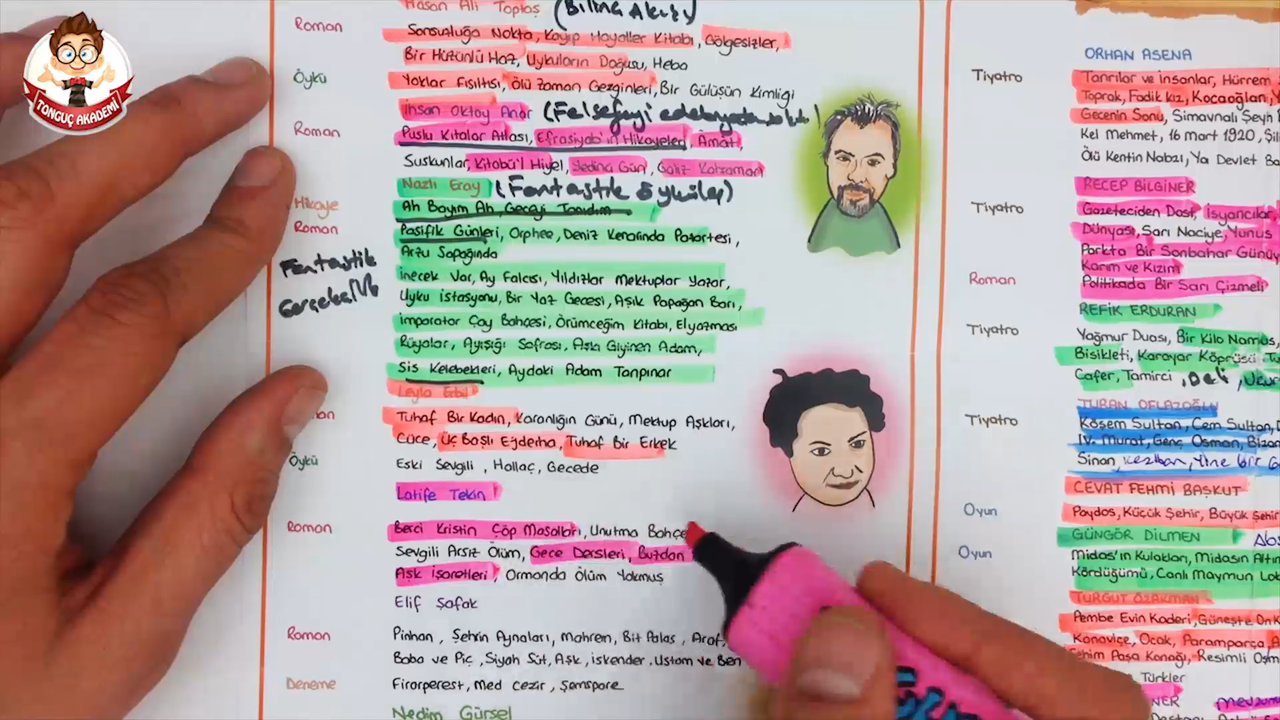 TONGUÇ AKADEMİ
Hasan Ali Toptaş (Bilinç Akışı)
Roman
Sonsuzluğa Nokta, Kayıp Hayaller Kitabı, Gölgesizler,
Bir Hüzünlü Haz, Uykuların Doğusu, Heba
Öykü
Yoklar Fısıltısı, Ölü Zaman Gezginleri, Bir Gülüşün Kimliği
İhsan Oktay Anar (Felsefeyi
Roman
Puslu Kıtalar Atlası, Efrasiyab'ın Hikayeleri, Amat,
Suskunlar, Kitabü'l Hiyel, Yedinci Gün, Galiz Kahraman
Nazlı Eray (Fantastik öyküler)
Hikaye
Ah Bayım Ah, Geceyi Tanıdım
Roman
Pasifik Günleri, Orphee, Deniz Kenarında Pazartesi,
Arzu Sapağında
Fantastik
İnecek Var, Ay Falcısı, Yıldızlar Mektuplar Yazar,
Uyku İstasyonu, Bir Yaz Gecesi, Aşık Papağan Barı,
İmparator Çay Bahçesi, Örümceğin Kitabı, Elyazması
Rüyalar, Ayışığı Sofrası, Aşkı Giyinen Adam,
Sis Kelebekleri, Aydaki Adam Tanpınar
Leyla Erbil
Tuhaf Bir Kadın, Karanlığın Günü, Mektup Aşkları,
Cüce, Üç Başlı Ejderha, Tuhaf Bir Erkek
Öykü
Eski Sevgili, Hallaç, Gecede
Latife Tekin
Roman
Berci Kristin Çöp Masalları, Unutma Bahçe
Sevgili Arsız Ölüm, Gece Dersleri, Buzdan
Aşk İşaretleri, Ormanda Ölüm Yokmuş
Elif Şafak
Roman
Pinhan, Şehrin Aynaları, Mahrem, Bit Palas, Araf,
Baba ve Piç, Siyah Süt, Aşk, İskender, Ustam ve Ben
Deneme
Firarperest, Med Cezir, Şemspare
Nedim Gürsel
ORHAN ASENA
Tiyatro
Tanrılar ve İnsanlar, Hürrem
Toprak, Fadik Kız, Kocaoğlan, Y
Gecenin Sonu, Simavnalı Şeyh
Kel Mehmet, 16 Mart 1920, Şili
Ölü Kentin Nabzı, Ya Devlet Ba
RECEP BİLGİNER
Tiyatro
Gazeteciden Dost, İsyancılar,
Dünyası, Sarı Naciye, Yunus
Parkta Bir Sonbahar Günüy
Karım ve Kızım
Roman
Politikada Bir Sarı Çizmeli
REFİK ERDURAN
Tiyatro
Yağmur Duası, Bir Kilo Namus,
Bisikleti, Karayar Köprüsü
Cafer, Tamirci, Deli,
TURAN OFLAZOĞLU
Tiyatro
Kösem Sultan, Cem Sultan,
IV. Murat, Genç Osman, Biza
Sinan, Keziban, Yine bir
CEVAT FEHMİ BAŞKUT
Oyun
Paydos, Küçük Şehir, Büyük Şehir
GÜNGÖR DİLMEN
Oyun
Midas'ın Kulakları, Midasın Altın
Kördüğümü, Canlı Maymun Lok
TURGUT ÖZAKMAN
Pembe Evin Kaderi, Güneşte On K
Kanaviçe, Ocak, Paramparça,
Fehim Paşa Konağı, Resimli Osm
Türkler